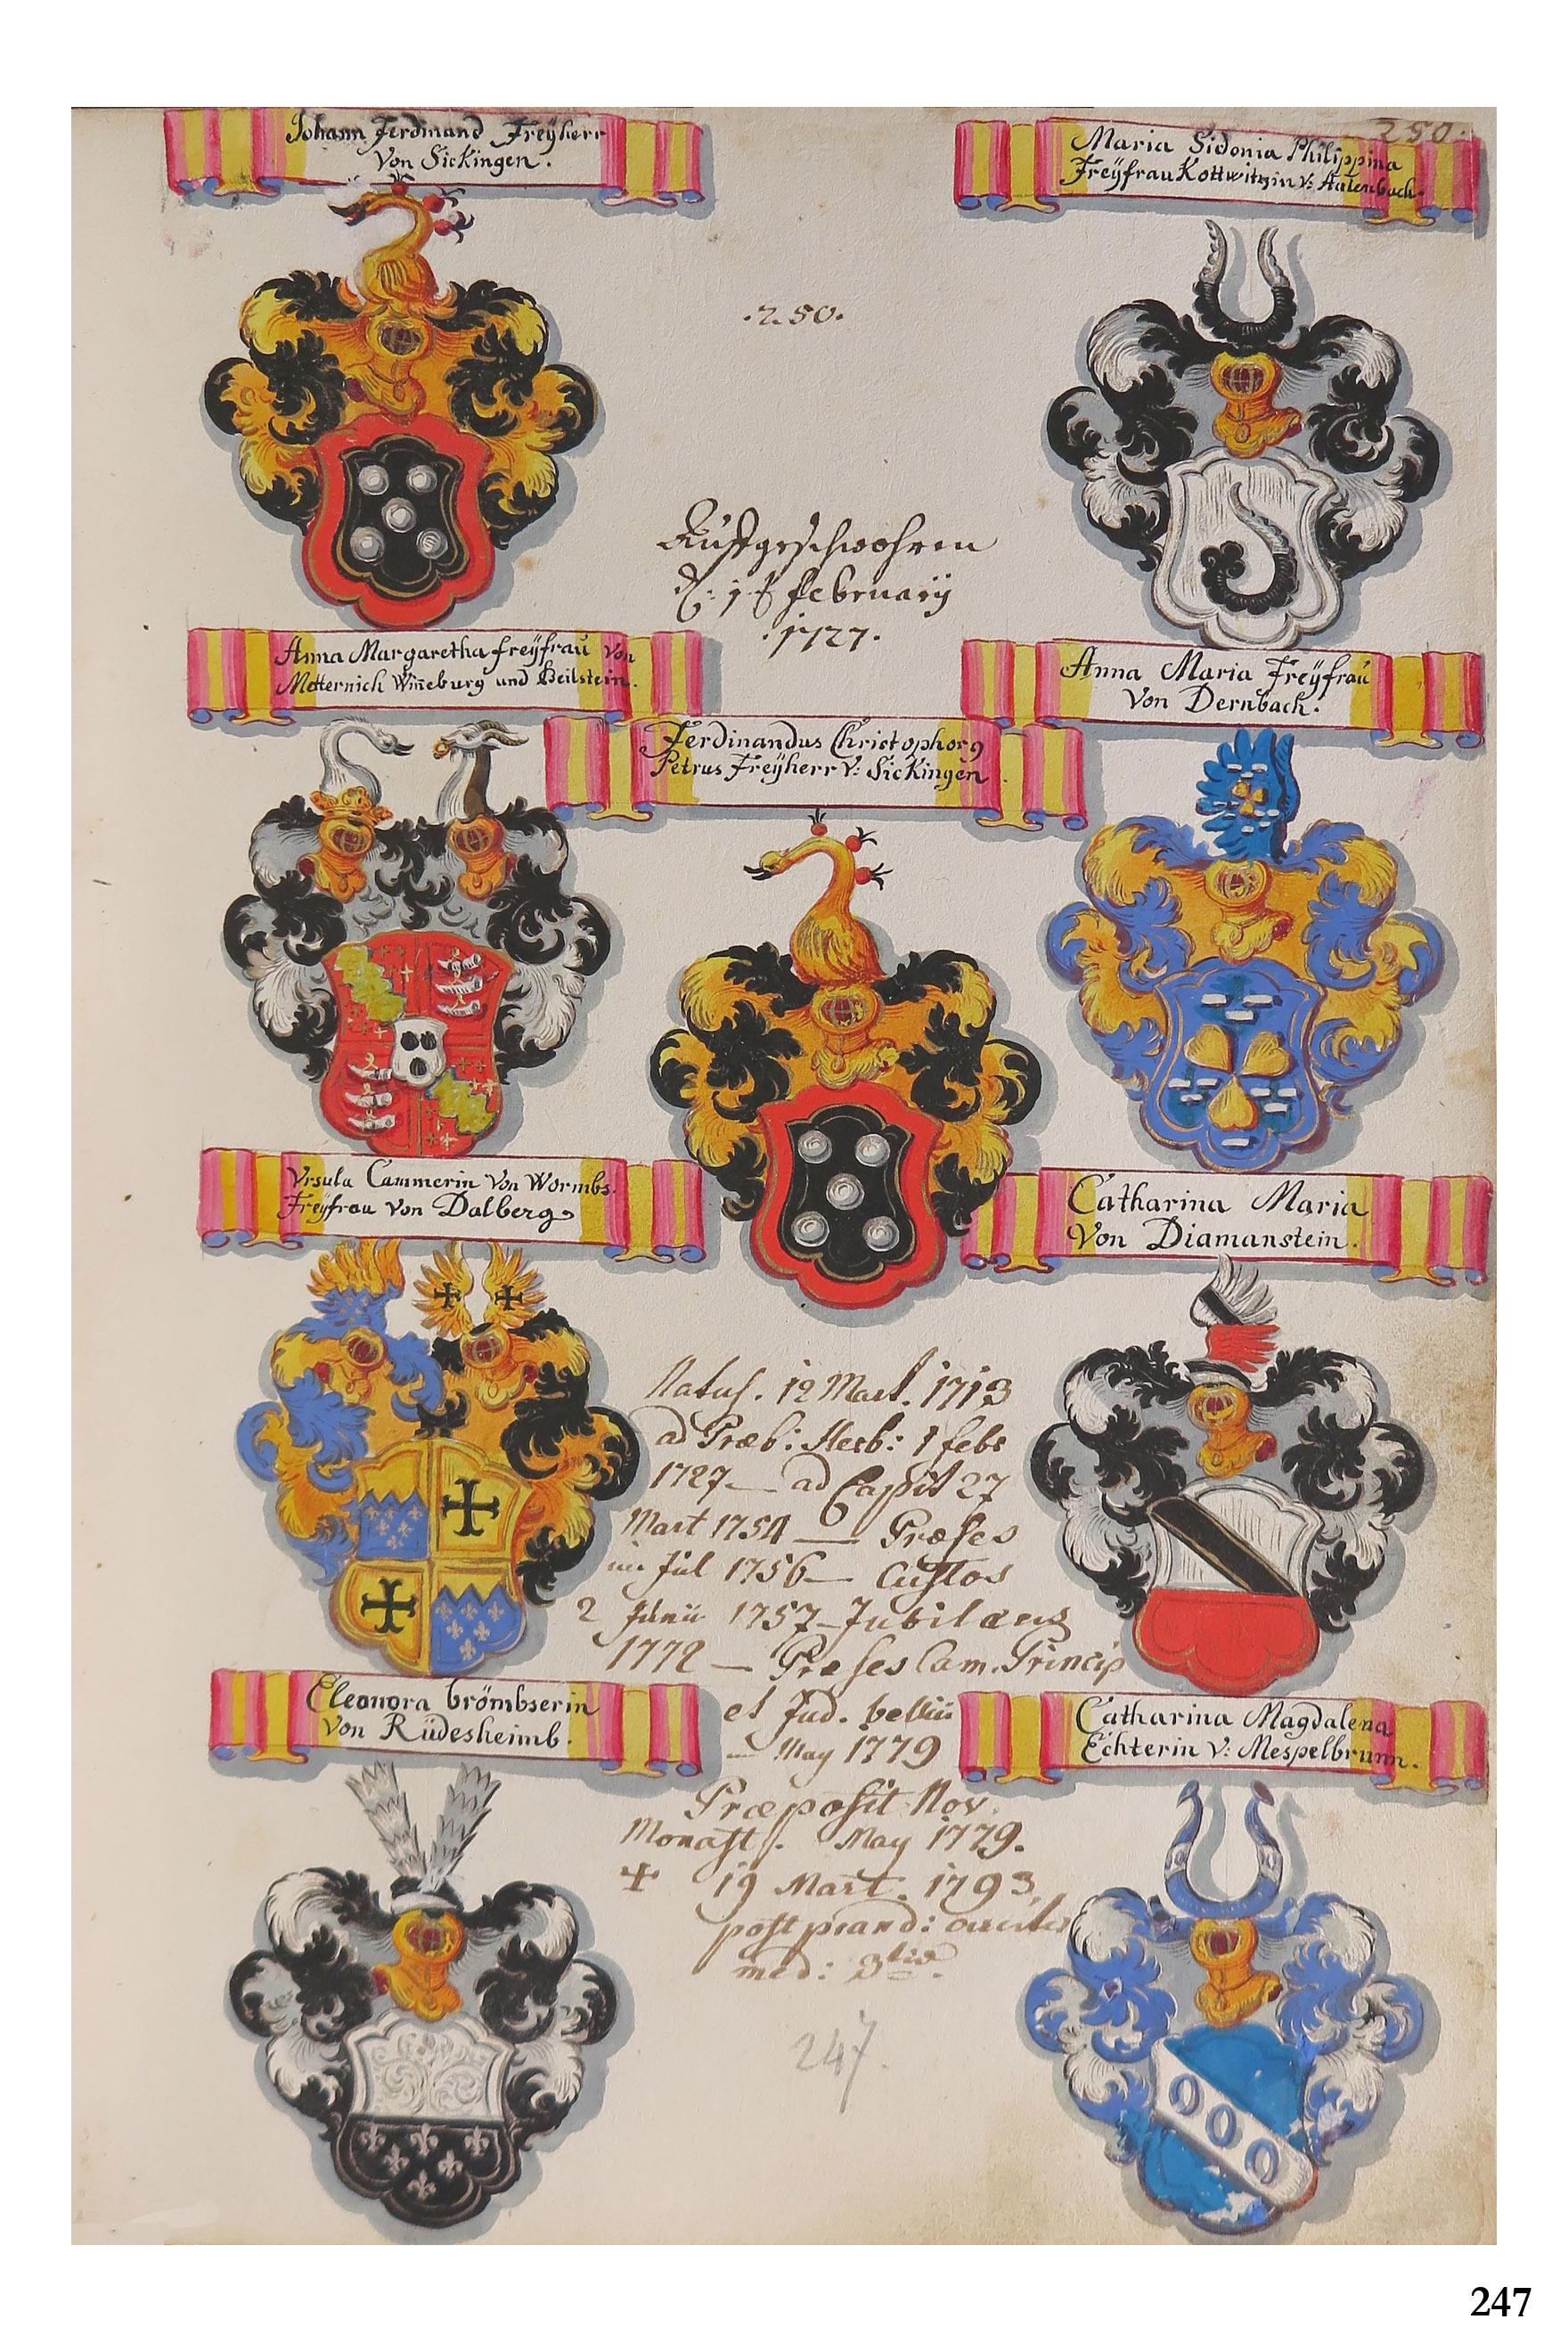 Johann Ferdinand Freÿherr
Von Sickingen.
250.
Maria Sidonia Philippina
Freÿfrau Kottwitzin v: Aulenbach.
.250.
Auffgeschwohren
d: 1t february
.1727.
Anna Margaretha freÿfrau von
Metternich Wineburg und Beilstein.
Anna Maria Freÿfrau
Von Dernbach.
Ferdinandus Christophorg
Petrus Freÿherr V: Sickingen
Vrsula Cammerin Von Wormbs.
Freÿfrau von Dalberg
Catharina Maria
Von Diamanstein.
Natus. 12 Mart. 1713
ad Præb: Herb: 1 febr
1727 — ad Capit 27
Mart 1754 — Præses
im Jul 1756 — Custos
2 Junii 1757 — Jubilaeus
1772 — Præses Cam. Princip
et Jud. bellii
— May 1779
Præposit Nov.
Monast. May 1779.
+ 19 Mart. 1793.
post prand:
med: 3tia.
Eleonora brömbserin
von Rüdesheimb.
Catharina Magdalena
Echterin V: Mespelbrunn.
247.
247